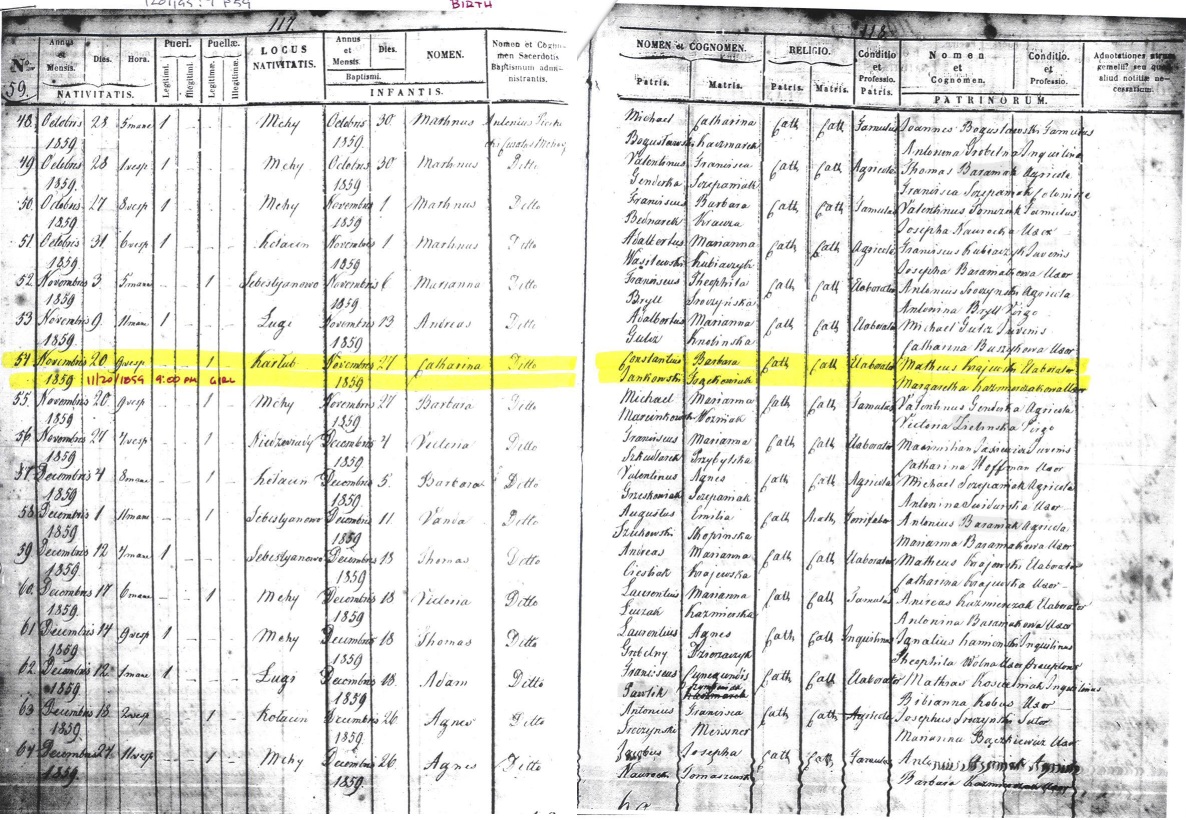 BIRTH
117.
118.
Nrus
59.
Annus et Mensis. Dies. Hora. Pueri. Puellæ. LOCUS NATIVITATIS. Annus et Mensis. Dies. NOMEN. Nomen et Cognomen Sacerdotis Baptismum administrantis.
Legitimi. Illegitimi. Legitimæ. Illegitimæ. Baptismi.
NATIVITATIS. INFANTIS.
NOMEN et COGNOMEN. RELIGIO. Conditio et Professio Patris. Nomen et Cognomen. Conditio. et Professio. Adnotationes
Patris. Matris. Patris. Matris.
PATRINORUM.
48. Octobris 28 5 mane 1 Mchy Octobris 30 Martinus Antonius
1859 1859
Michael Catharina Cath Cath Famulus Joannes Bogusławski Famulus
Bogusławski Kaczmarek Antonina Grobelna Inquilina
49 Octobris 28 1 vesp 1 Mchy Octobris 30 Martinus Ditto
1859 1859
Valentinus Francisca Cath Cath Agricola Thomas Baramiak Agricola
Genderka Szczepaniak Francisca Szczepaniak
50. Octobris 27 8 vesp 1 Mchy Novembris 1 Martinus Ditto
1859 1859
Franciscus Barbara Cath Cath Famulus Valentinus Tomczak Famulus
Bednarek Krauza Josepha Nawrocka Uxor
51 Octobris 31 6 vesp 1 Kotacin Novembris 1 Martinus Ditto
1859 1859
Adalbertus Marianna Cath Cath Agricola Franciscus Kubiaczyk Juvenis
Wasilewski Kubiaczyk Josepha Baramiakowa Uxor
52 Novembris 3 5 mane 1 Sebestyanowo Novembris 6 Marianna Ditto
1859 1859
Franciscus Theophila Cath Cath Elaborator Antonius Sroczynski Agricola
Bryll Sroczyńska Antonina Bryll Virgo
53 Novembris 9 11 mane 1 Ługi Novembris 13 Andreas Ditto
1859 1859
Adalbertus Marianna Cath Cath Elaborator Michael Gulcz Juvenis
Gulcz Catharina Uxor
54 Novembris 20 9 vesp 1 Karlub Novembris 27 Catharina Ditto
1859 11/20/1859 9:00 PM GIRL 1859
Constantius Barbara Cath Cath Elaborator Matheus Krajewski Elaborator
Jankowski Margaretha Kazmierczakowa Uxor
55. Novembris 20 9 vesp 1 Mchy Novembris 27 Barbara Ditto
1859 1859
Michael Marianna Cath Cath Famulus Valentinus Genderka Agricola
Marcinkowski Wozniak Victoria Zielinska Virgo
56 Novembris 27 7 vesp 1 Novembris 4 Victoria Ditto
1859 1859
Franciscus Marianna Cath Cath Elaborator Maximilian Juvenis
Szkudlarek Przybylska Catharina Hoffman Uxor
57 Decembris 4 8 mane 1 Kotacin Decembris 5 Barbara Ditto
1859 1859
Valentinus Agnes Cath Cath Agricola Michael Szczepaniak Agricola
Grzeskowiak Szczepaniak Antonina Uxor
58 Decembris 1 11 mane 1 Sebestyanowo Decembris 11 Vanda Ditto
1859 1859
Augustus Emilia Cath Antonius Baramiak Agricola
Szukowski Skopinska Marianna Baramiakowa Uxor
59 Decembris 12 7 mane 1 Sebestyanowo Decembris 18 Thomas Ditto
1859 1859
Andreas Marianna Cath Cath Elaborator Matheus Krajewski Elaborator
Ciesliak Krajewska Catharina Krajewska Uxor
60. Decembris 17 6 mane 1 Mchy Decembris 18 Victoria Ditto
1859 1859
Laurentius Marianna Cath Cath Famulus Andreas Kazmierczak Elaborator
Luczak Kazmierska Antonina Baramiakowa Uxor
61 Decembris 14 9 vesp 1 Mchy Decembris 18 Thomas Ditto
1859 1859
Laurentius Agnes Cath Cath Inquilinus Ignatius Kamienski Inquilinus
Grobelny Theophila Wolna Uxor
62 Decembris 12 1 mane 1 Ługi Decembris 18 Adam Ditto
1859 1859
Franciscus Cunegundis Cath Cath Elaborator Mathias Inquilinus
Pawlik Bibianna Kobus Uxor
63 Decembris 18 2 vesp 1 Kotacin Decembris 26 Agnes Ditto
1859 1859
Antonius Francisca Cath Cath Agricola Josephus Sroczynski Sutor
Sroczynski Meissner Marianna Bączkiewicz Uxor
64 Decembris 24 11 vesp 1 Mchy Decembris 26 Agnes Ditto
1859 1859
Jacobus Josepha Cath Cath Famulus
Nawrocki Tomaszewska Barbara Kazmierczak Uxor